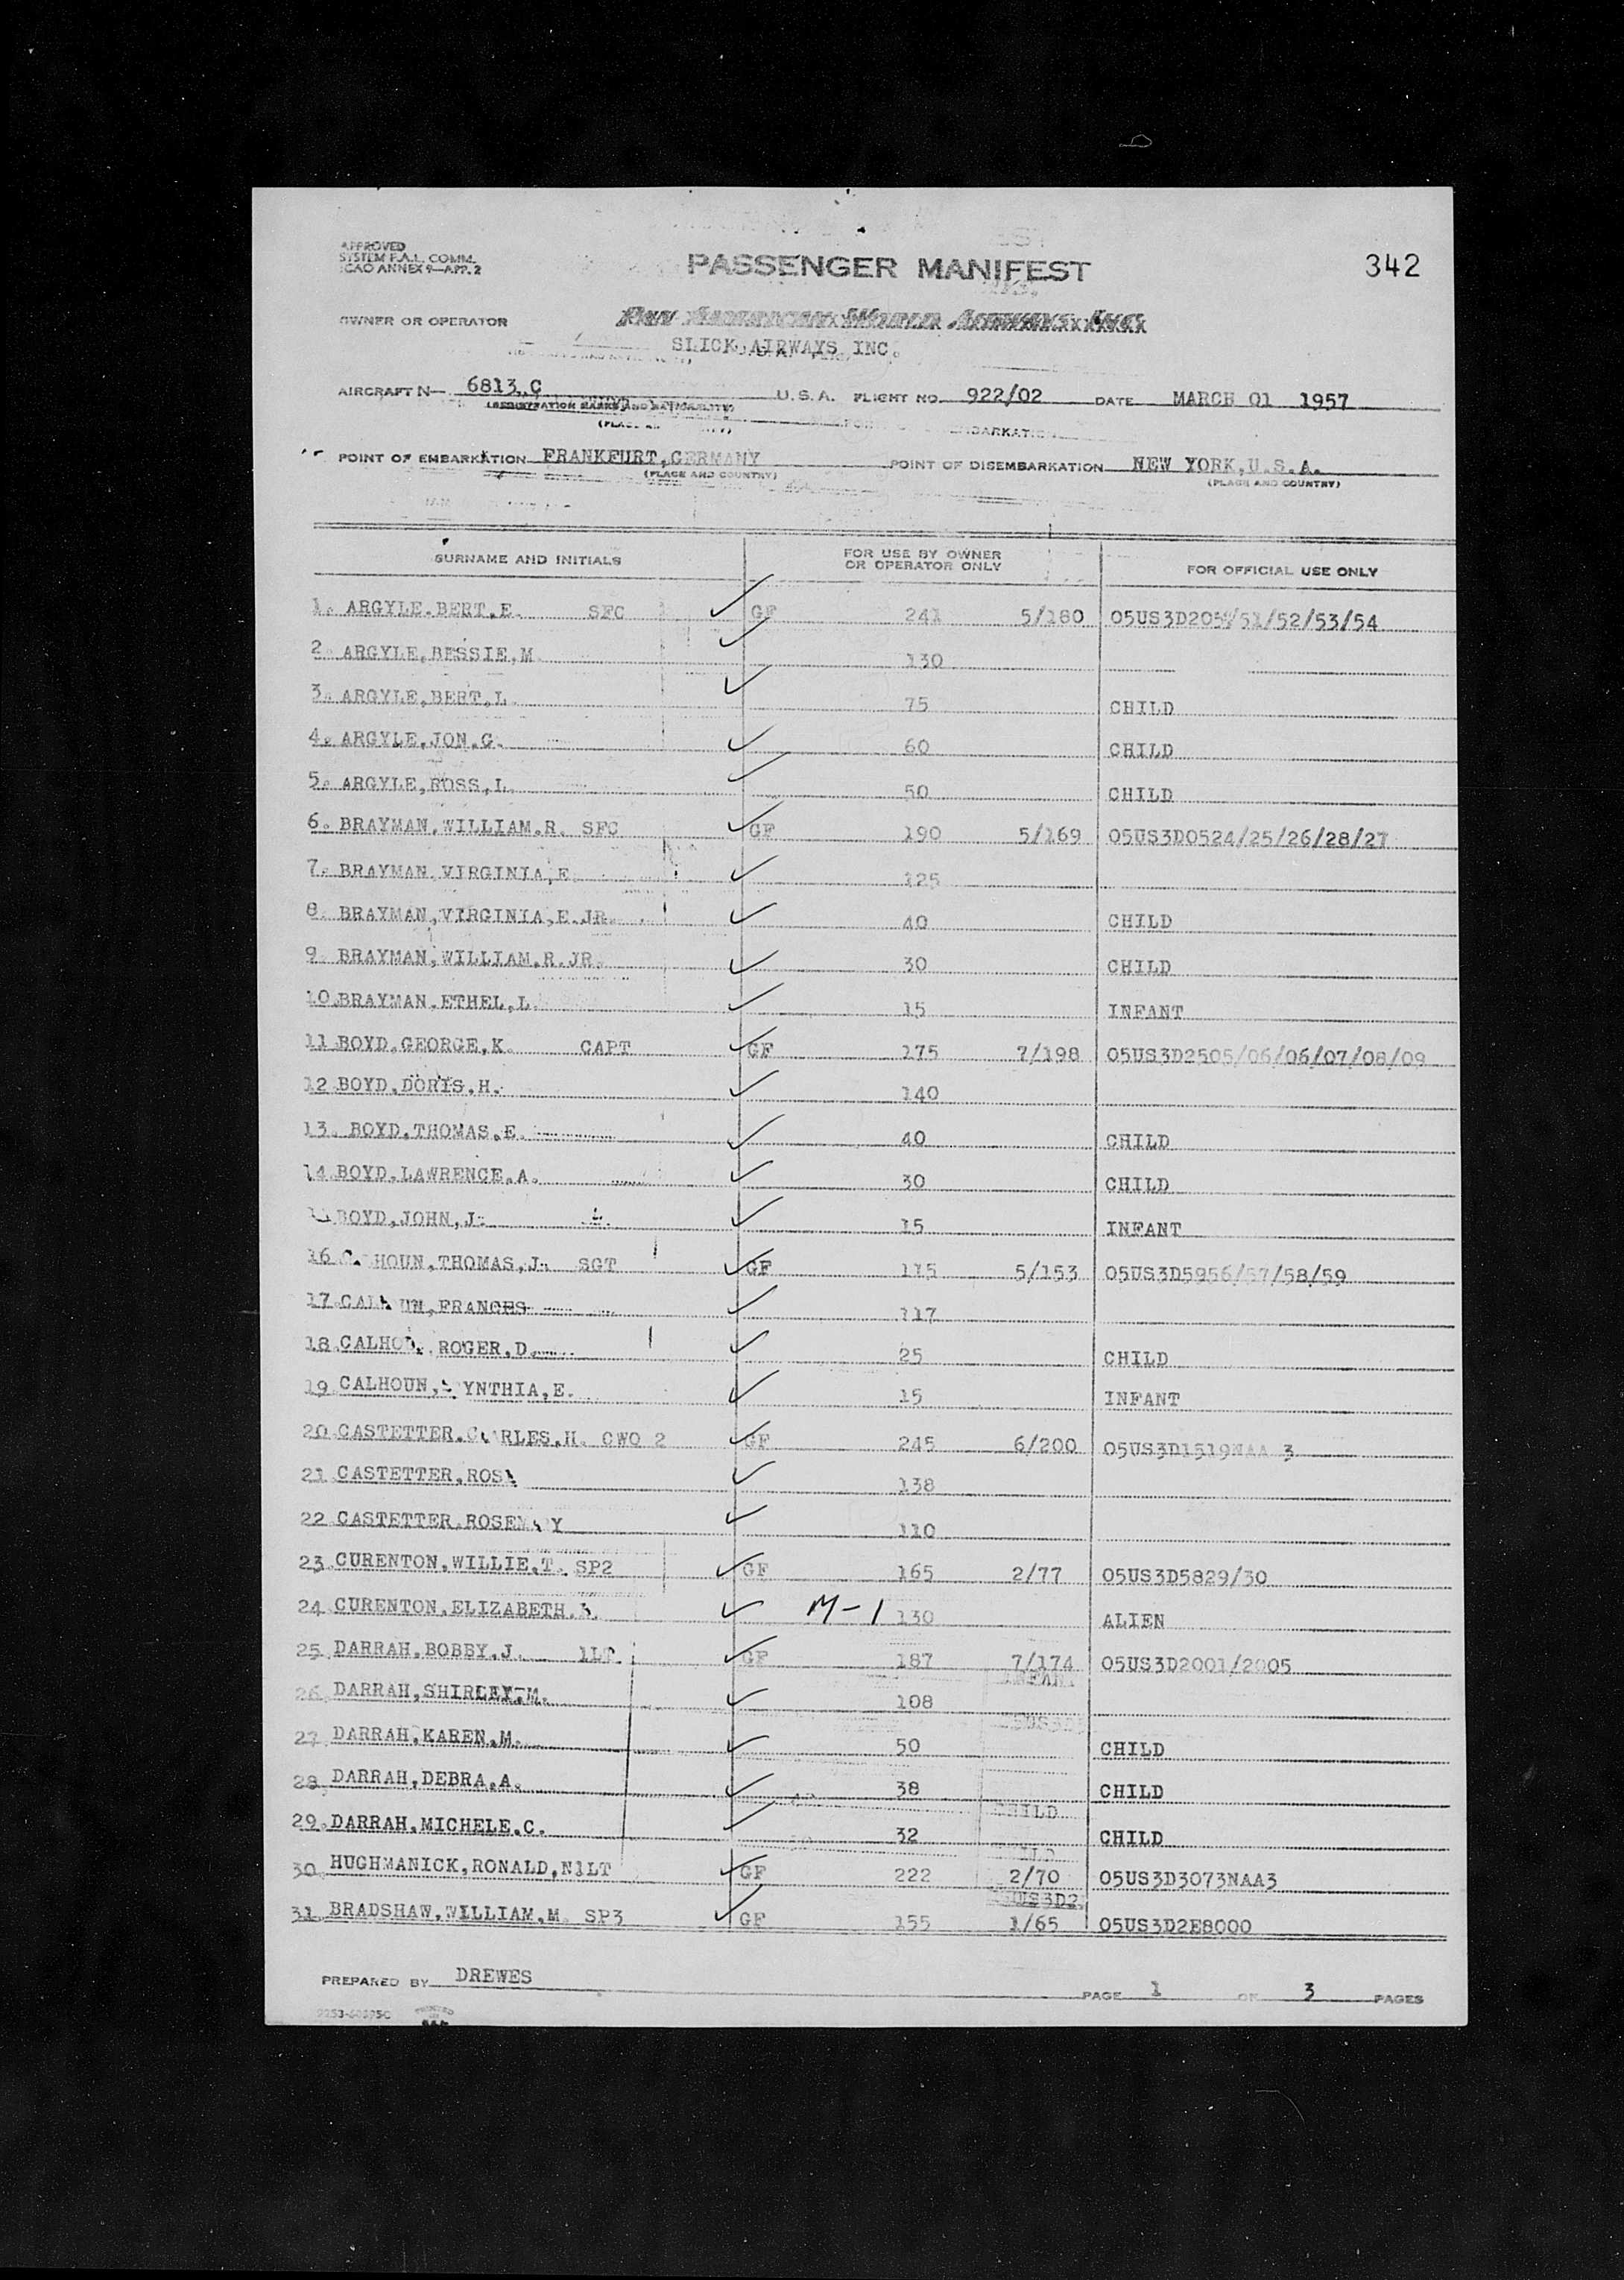 APPROVED
SYSTEM F.A.L. COMM.
ICAO ANNEX 9—APP. 2
PASSENGER MANIFEST
342
OWNER OR OPERATOR
SLICK AIRWAYS INC.
AIRCRAFT N— 6813 C U.S.A. FLIGHT NO. 922/02 DATE MARCH 01 1957
(REGISTRATION MARKS AND NATIONALITY)
POINT OF EMBARKATION FRANKFURT, GERMANY POINT OF DISEMBARKATION NEW YORK, U.S.A.
(PLACE AND COUNTRY) (PLACE AND COUNTRY)
SURNAME AND INITIALS FOR USE BY OWNER OR OPERATOR ONLY FOR OFFICIAL USE ONLY
1. ARGYLE.BERT.E. SFC GF 241 5/180 /51/52/53/54
2. ARGYLE,BESSIE,M 130
3. ARGYLE,BERT,L. 75 CHILD
4. ARGYLE,JON.G. 60 CHILD
5. ARGYLE,ROSS,L. 50 CHILD
6. BRAYMAN.WILLIAM.R. SFC GF 190 5/169 05US3D0524/25/26/28/27
7. BRAYMAN.VIRGINIA,E. 125
8. BRAYMAN,VIRGINIA,E.JR. 40 CHILD
9. BRAYMAN,WILLIAM.R.JR. 30 CHILD
10. BRAYMAN.ETHEL,L. 15 INFANT
11 BOYD.GEORGE,K. CAPT GF 175 7/198 05US3D2505/06/06/07/08/09
12 BOYD,DORIS,H. 140
13. BOYD.THOMAS.E. 40 CHILD
14. BOYD.LAWRENCE.A. 30 CHILD
BOYD,JOHN,J. 15 INFANT
16 C HOUN,THOMAS,J. SGT GF 115 5/153 05US3D5956/57/58/59
17. CAL UN,FRANCES 117
18. CALHO , ROGER,D. 25 CHILD
19. CALHOUN, YNTHIA,E. 15 INFANT
20. CASTETTER.C RLES,H. CWO 2 GF 245 6/200 05US3D1519NAA 3
21 CASTETTER,ROS 138
22 CASTETTER.ROSEM Y 110
23. CURENTON,WILLIE,T. SP2 GF 165 2/77 05US3D5829/30
24. CURENTON,ELIZABETH. M-1 130 ALIEN
25. DARRAH,BOBBY.J. 1LT. GF 187 7/174 05US3D2001/2005
26. DARRAH,SHIRLEY,M. 108
27. DARRAH,KAREN,M. 50 CHILD
28. DARRAH,DEBRA.A. 38 CHILD
29. DARRAH.MICHELE.C. 32 CHILD
30. HUGHMANICK,RONALD,N1LT GF 222 2/70 05US3D3073NAA3
31. BRADSHAW,WILLIAM,M. SP3 GF 155 1/65 05US3D2E8000
PREPARED BY DREWES PAGE 1 OF 3 PAGES